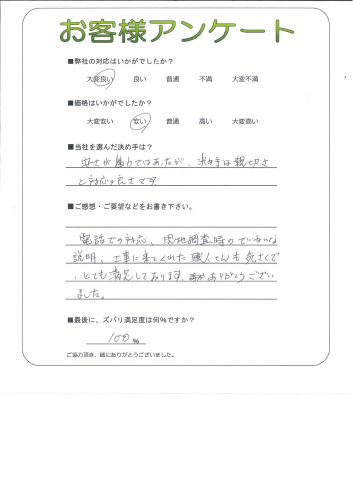 お客様アンケート
■弊社の対応はいかがでしたか？
大変良い 良い 普通 不満 大変不満
■価格はいかがでしたか？
大変安い 安い 普通 高い 大変高い
■当社を選んだ決め手は？
安さが魅力ではあったが、決め手は親切さ
と対応の良さです。
■ご感想・ご要望などをお書き下さい。
電話での対応、現地調査時のていねいな
説明、工事に来てくれた職人さんも気さくで
、とても満足しております。ありがとうござい
ました。
■最後に、ズバリ満足度は何%ですか？
100 %
ご協力頂き、誠にありがとうございました。